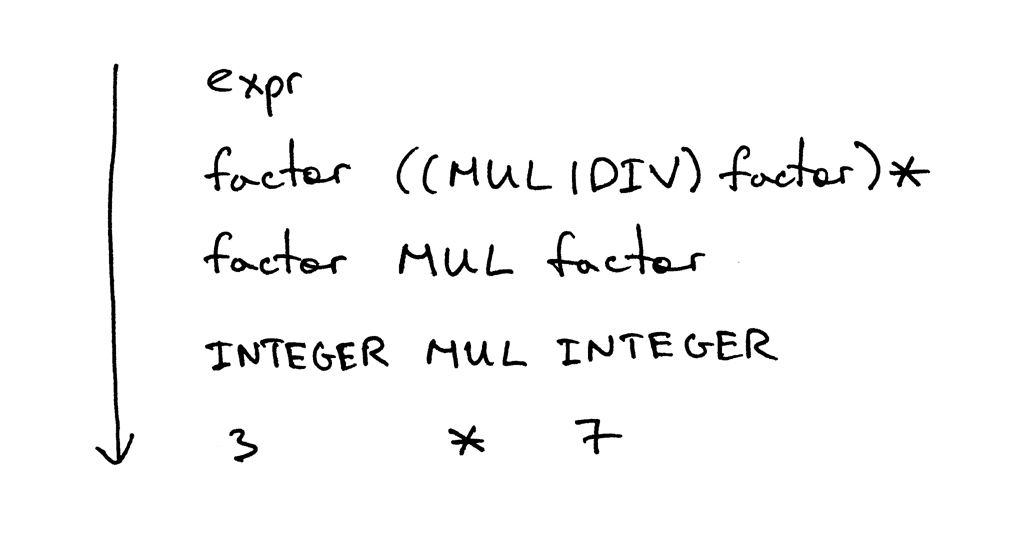 expr
factor ((MUL|DIV) factor)*
factor MUL factor
INTEGER MUL INTEGER
3 * 7